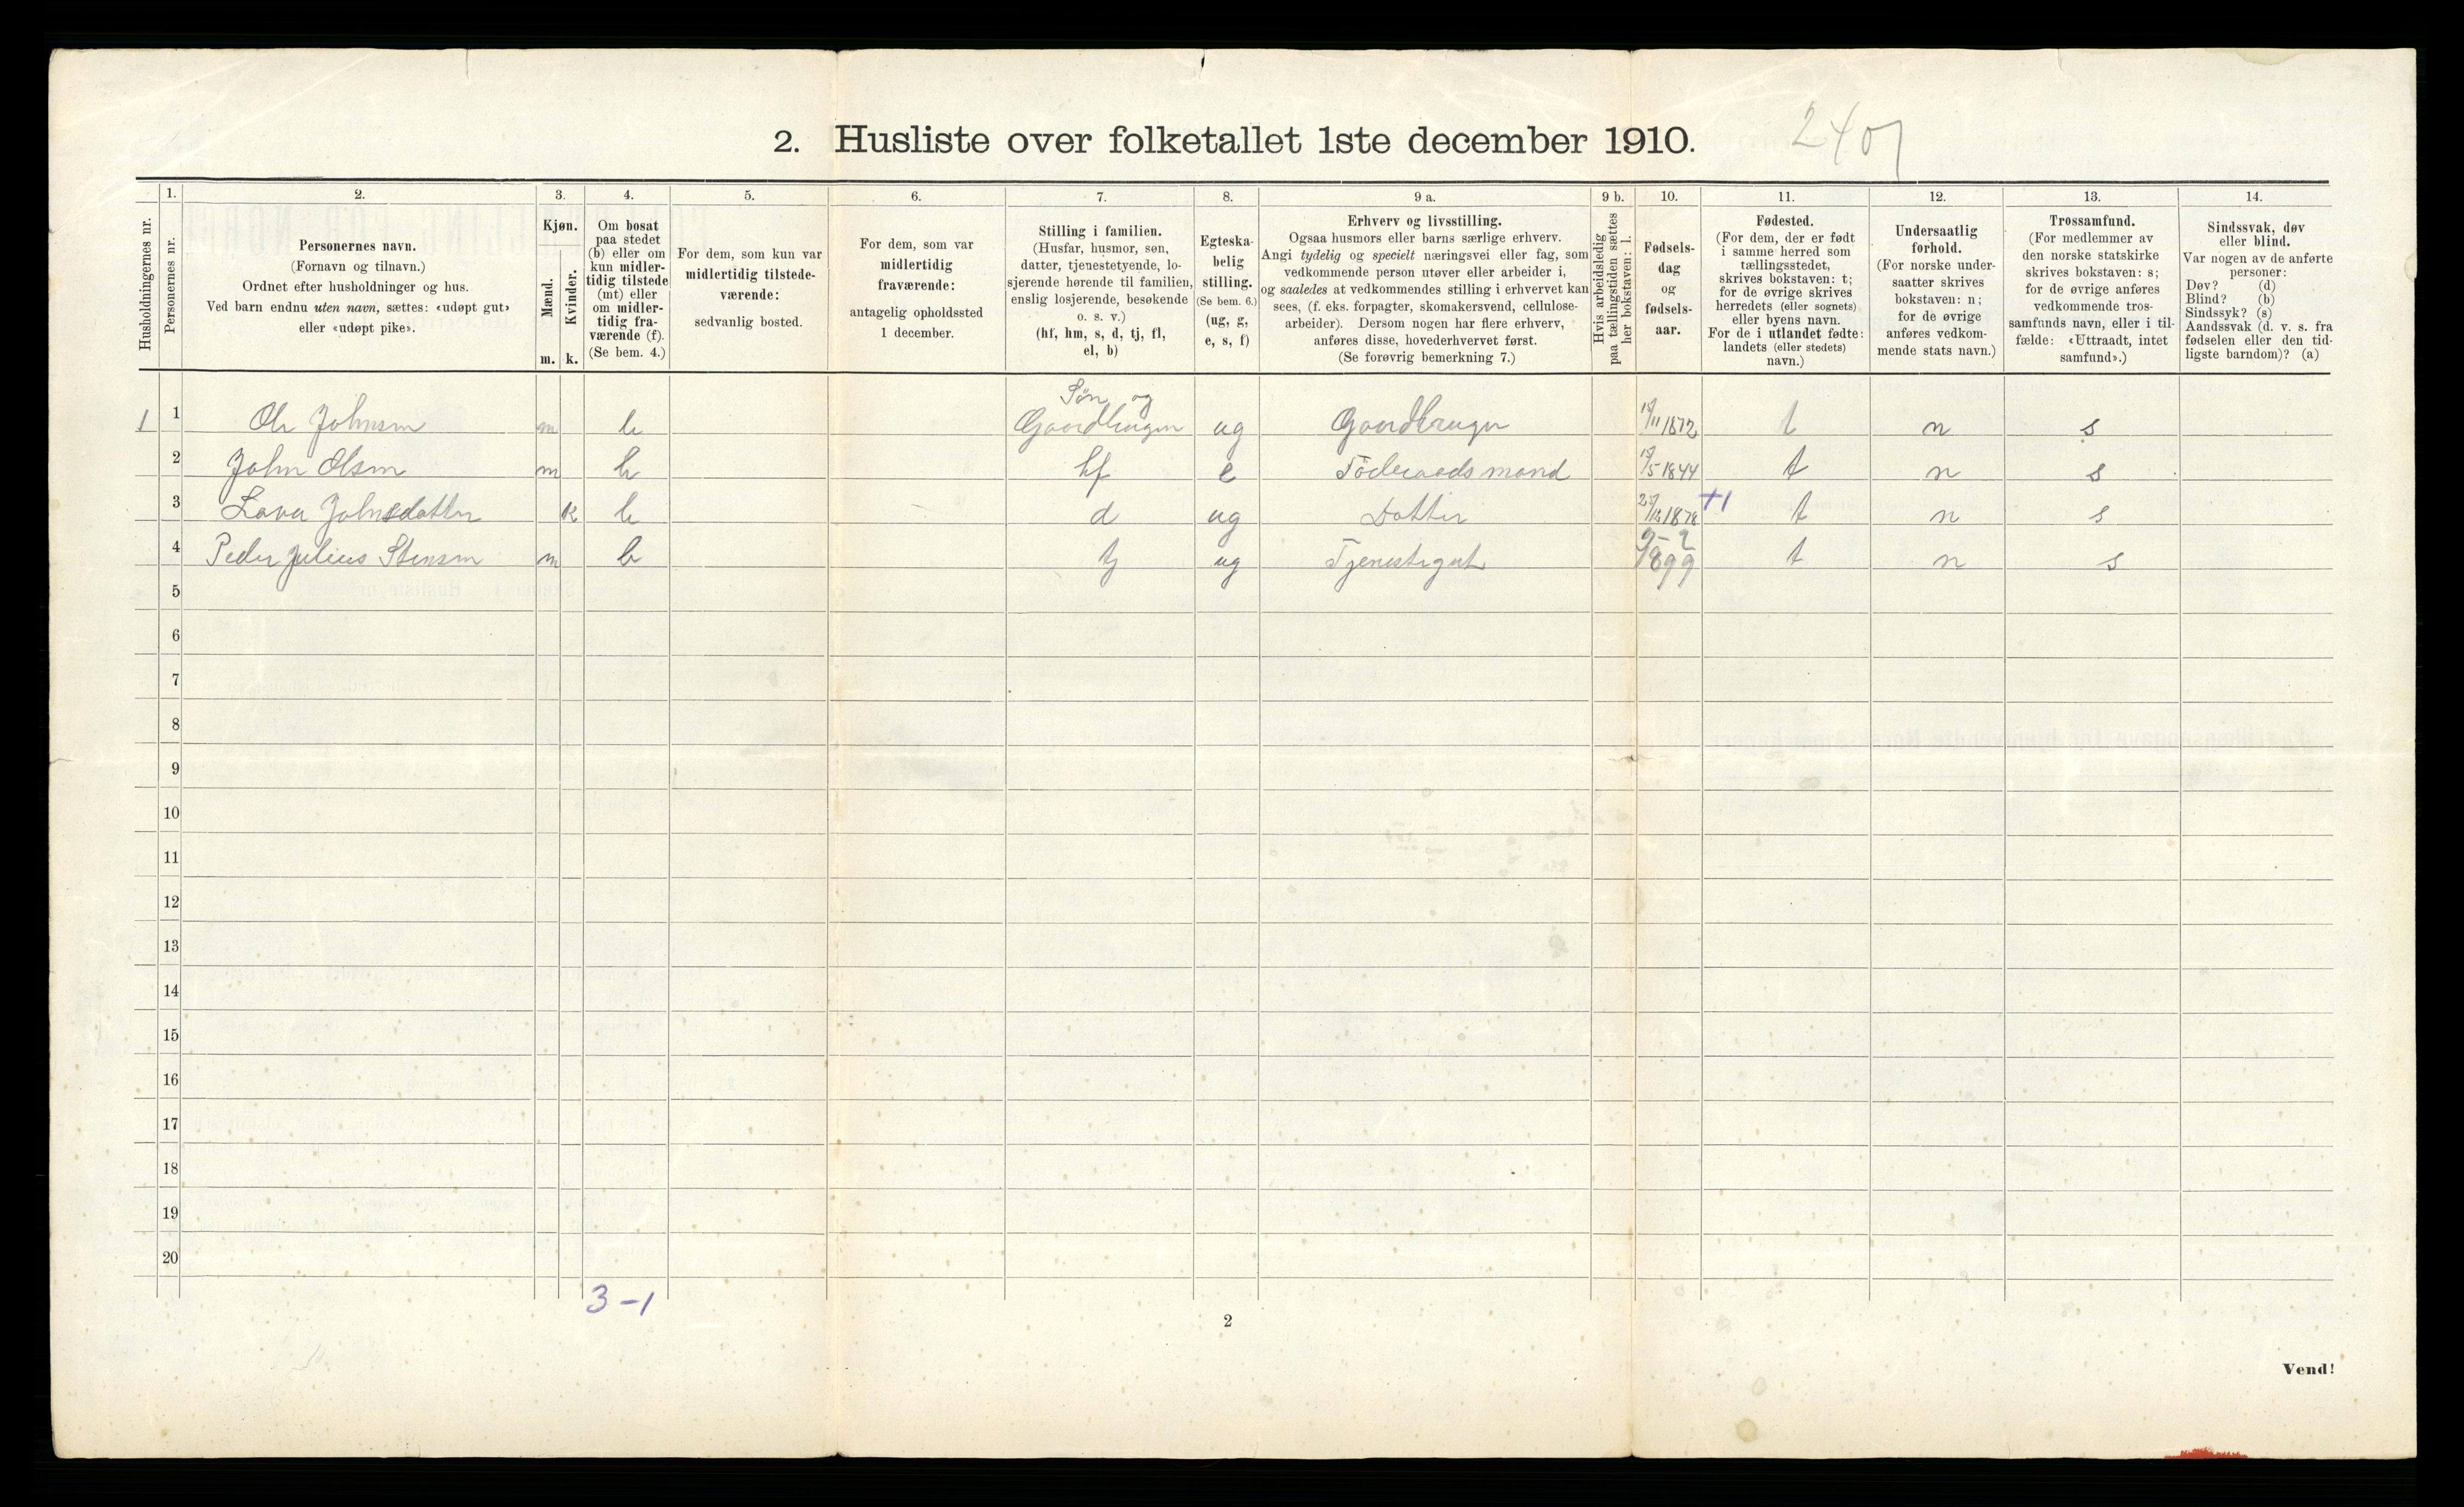 2. Husliste over folketallet 1ste december 1910.
2401
Husholdningernes nr.
1.
Personernes nr.
2.
Personernes navn.
(Fornavn og tilnavn.)
Ordnet efter husholdninger og hus.
Ved barn endnu uten navn, sættes: «udøpt gut»
eller «udøpt pike».
3.
Kjøn.
Mænd.
Kvinder.
m. k.
4.
Om bosat
paa stedet
(b) eller om
kun midler-
tidig tilstede
(mt) eller
om midler-
tidig fra-
værende (f).
(Se bem. 4.)
5.
For dem, som kun var
midlertidig tilstede-
værende:
sedvanlig bosted.
6.
For dem, som var
midlertidig
fraværende:
antagelig opholdssted
1 december.
7.
Stilling i familien.
(Husfar, husmor, søn,
datter, tjenestetyende, lo-
sjerende hørende til familien,
enslig losjerende, besøkende
o. s. v.)
(hf, hm, s, d, tj, fl,
el, b)
8.
Egteska-
belig
stilling.
(Se bem. 6.)
(ug, g,
e, s, f)
9 a.
Erhverv og livsstilling.
Ogsaa husmors eller barns særlige erhverv.
Angi tydelig og specielt næringsvei eller fag, som
vedkommende person utøver eller arbeider i,
og saaledes at vedkommendes stilling i erhvervet kan
sees, (f. eks. forpagter, skomakersvend, cellulose-
arbeider). Dersom nogen har flere erhverv,
anføres disse, hovederhvervet først.
(Se forøvrig bemerkning 7.)
9 b.
Hvis arbeidsledig
paa tællingstiden sættes
her bokstaven: l.
10.
Fødsels-
dag
og
fødsels-
aar.
11.
Fødested.
(For dem, der er født
i samme herred som
tællingsstedet,
skrives bokstaven: t;
for de øvrige skrives
herredets (eller sognets)
eller byens navn.
For de i utlandet fødte:
landets (eller stedets)
navn.)
12.
Undersaatlig
forhold.
(For norske under-
saatter skrives
bokstaven: n;
for de øvrige
anføres vedkom-
mende stats navn.)
13.
Trossamfund.
(For medlemmer av
den norske statskirke
skrives bokstaven: s;
for de øvrige anføres
vedkommende tros-
samfunds navn, eller i til-
fælde: «Uttraadt, intet
samfund».)
14.
Sindssvak, døv
eller blind.
Var nogen av de anførte
personer:
Døv? (d)
Blind? (b)
Sindssyk? (s)
Aandssvak (d. v. s. fra
fødselen eller den tid-
ligste barndom)? (a)
Søn og
1 1 Ole Johnsen m b Gaardbruger ug Gaardbruger 19/11 1872 t n s
2 John Olsen m b hf e Föderaadsmand 19/5 1844 t n s
3 Lava Johnsdatter k b d ug Datter 1878 +1 t n s
4 Peder Julius Stensen m b tj ug Tjenestegut 9-2 1899 t n s
5
6
7
8
9
10
11
12
13
14
15
16
17
18
19
20
3-1
2
Vend!